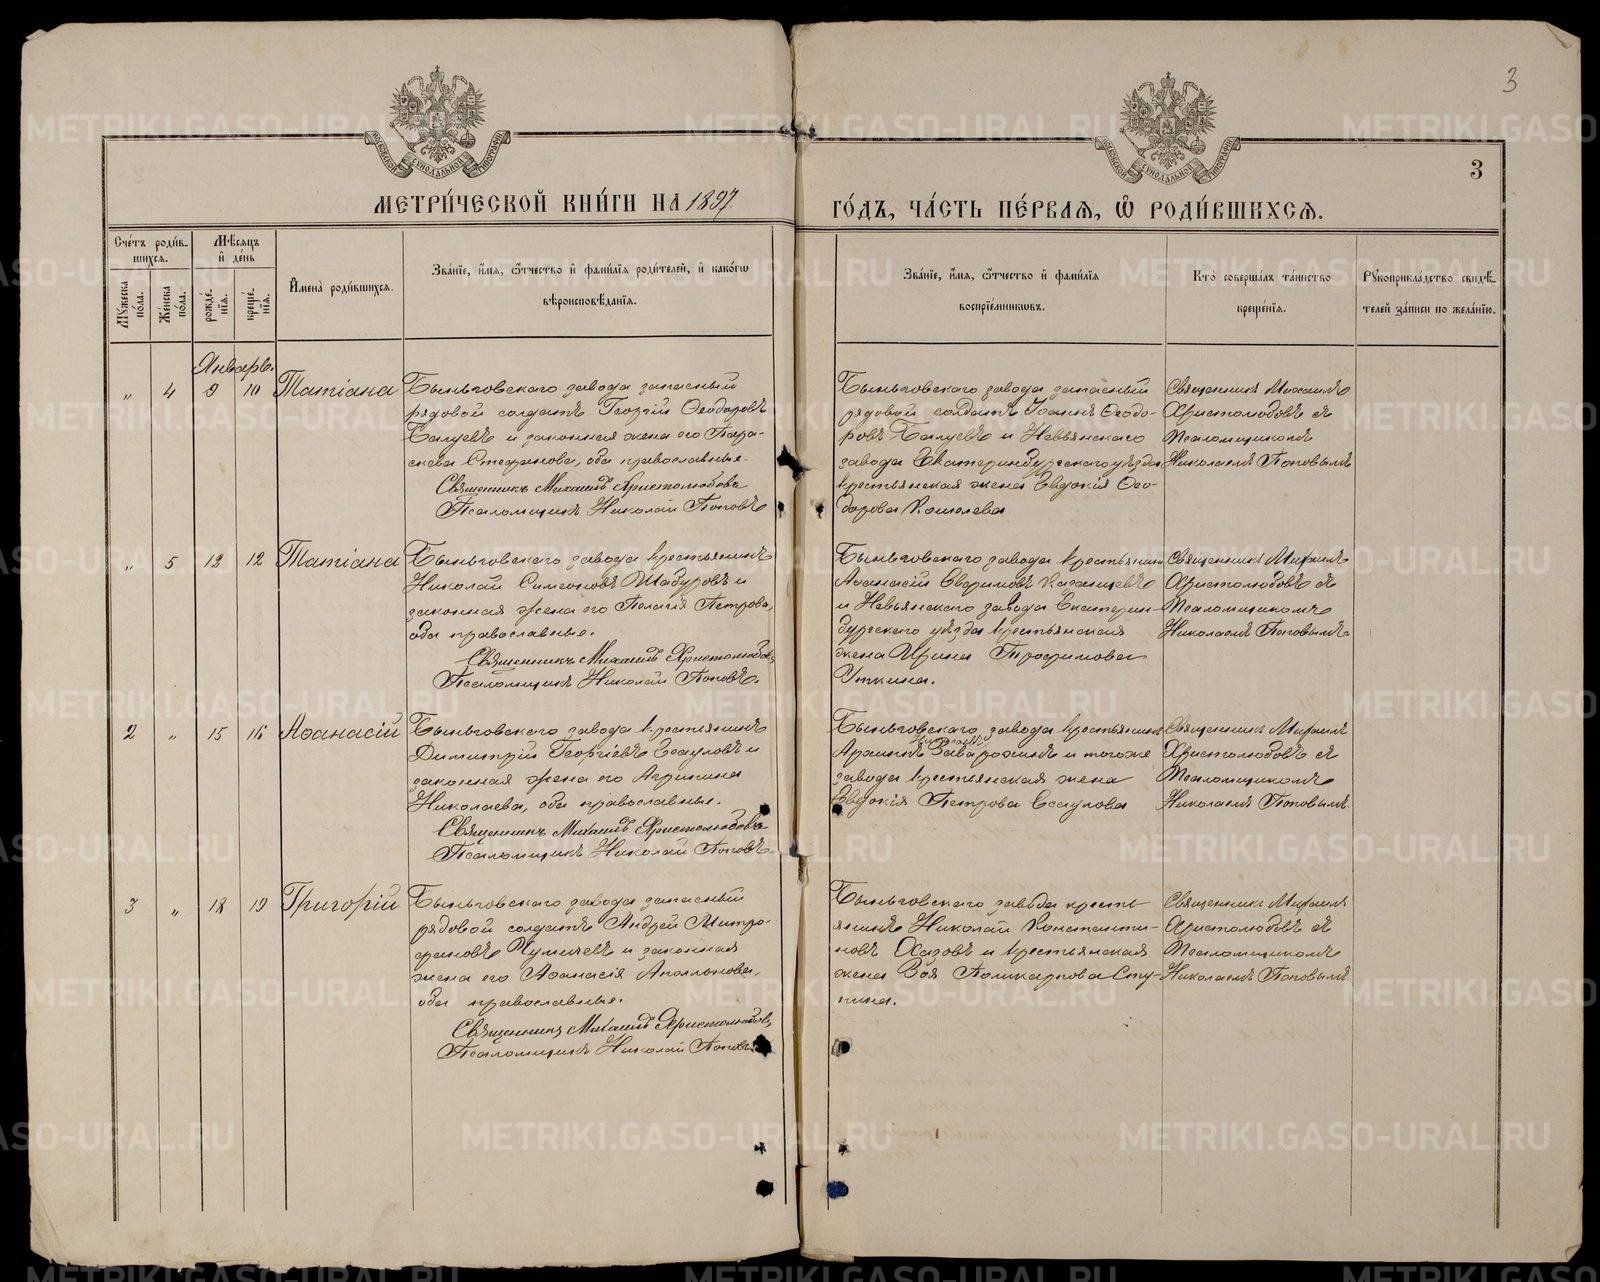 3
МОСКОВСКОЙ СѴНОДАЛЬНОЙ ТИПОГРАФІИ
МОСКОВСКОЙ СѴНОДАЛЬНОЙ ТИПОГРАФІИ
3
МЕТРИ́ЧЕСКОЙ КНИ́ГИ НА 1897.
ГО́ДЪ, ЧА́СТЬ ПЕ́РВАѦ, Ѽ РОДИ́ВШИХСѦ.
Сче́тъ роди́в-
шихся.
Мꙋжеска по́ла.
Же́нска по́ла.
Мѣ́сяцъ
и҆ де́нь
рожде́нїя.
креще́нїя.
И҆мена̀ роди́вшихся.
Зва́нїе, и҆́мя, ѻ҆́тчество и҆ фами́лїя роди́телей, и҆ како́гѡ
вѣроисповѣ́данїя.
Зва́нїе, и҆́мя, ѻ҆́тчество и҆ фами́лїя
воспрїе́мникѡвъ.
Кто̀ соверша́лъ та́инство
креще́нїя.
Рꙋкоприкла́дство свидѣ́-
телей за́писи по жела́нїю.
Январь.
„ 4 9 10 Татіана
Быньговскаго завода запасный
рядовой солдатъ Георгій Ѳеодоровъ
Балуевъ и законная жена его Пара-
скева Стефанова, оба православные.
Священникъ Михаилъ Христолюбовъ
Псаломщикъ Николай Поповъ
Быньговскаго завода запасный
рядовой солдатъ Іоаннъ Ѳеодо-
ровъ Балуевъ и Невьянскаго
завода Екатеринбургскаго уѣзда
крестьянская жена Евдокія Ѳео-
дорова Кошелева
Священникъ Михаилъ
Христолюбовъ съ
Псаломщикомъ
Николаемъ Поповымъ
„ 5 12 12 Татіана
Быньговскаго завода крестьянинъ
Николай Симеоновъ Шабуровъ и
законная жена его Пелагія Петрова,
оба православные.
Священникъ Михаилъ Христолюбовъ
Псаломщикъ Николай Поповъ.
Быньговскаго завода крестьянинъ
Аѳанасій Евфимовъ Казанцевъ
и Невьянскаго завода Екатерин-
бургскаго уѣзда крестьянская
жена Ирина Трофимова
Уткина.
Священникъ Михаилъ
Христолюбовъ съ
Псаломщикомъ
Николаемъ Поповымъ.
2 „ 15 16 Аѳанасій
Быньговскаго завода крестьянинъ
Димитрій Георгіевъ Есауловъ и
законная жена его Агрипина
Николаева, оба православные.
Священникъ Михаилъ Христолюбовъ
Псаломщикъ Николай Поповъ.
Быньговскаго завода крестьянинъ
Заварохинъ и тогоже
завода крестьянская жена
Евдокія Петрова Есаулова
Священникъ Михаилъ
Христолюбовъ съ
Псаломщикомъ
Николаемъ Поповымъ.
3 „ 18 19 Григорій
Быньговскаго завода запасный
рядовой солдатъ Андрей Митро-
фановъ и законная
жена его Аѳанасія Аполлонова,
оба православные.
Священникъ Михаилъ Христолюбовъ
Псаломщикъ Николай Поповъ
Быньговскаго завода кресть-
янинъ Николай Константи-
новъ и крестьянская
жена Зоя Поликарпова Сту-
пина.
Священникъ Михаилъ
Христолюбовъ съ
Псаломщикомъ
Николаемъ Поповымъ.
METRIKI.GASO-URAL.RU